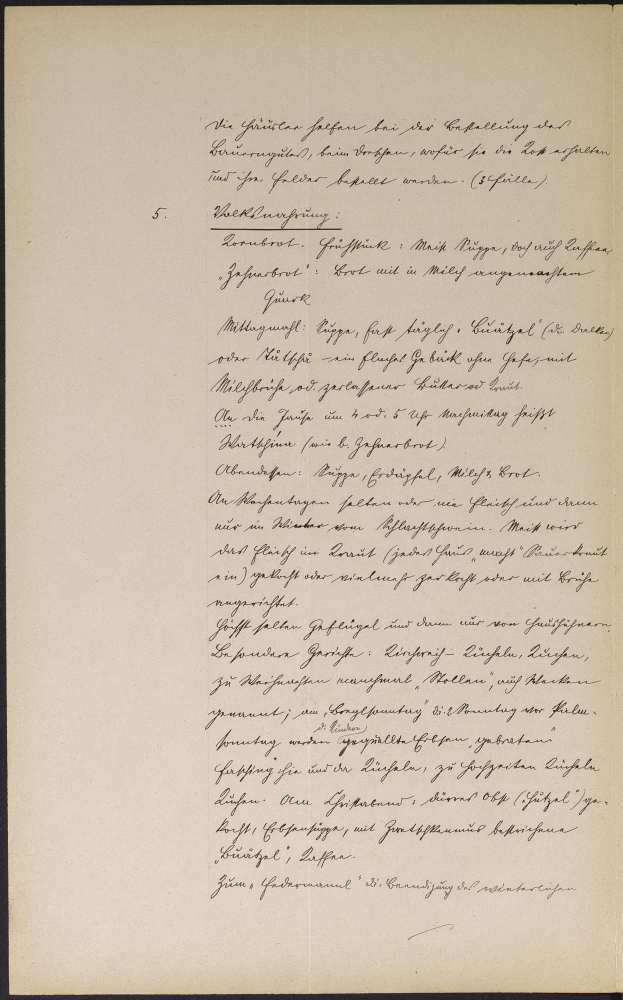 Die Häusler helfen bei der Bestellung des
Bauerngutes, beim Dreschen, wofür sie die Kost erhalten
und ihre Felder bestellt werden. (3 Fälle)
5. Volksnahrung:
Kornbrot. Frühstück: Meist Suppe, doch auch Kaffee,
"Zehnerbrot": Brot mit in Milch angemachtem
Quark
Mittagmahl: Suppe, fast täglich "Buätzel" (di. Dalken)
oder Tätschä - ein flaches Gebäck ohne Hefe, mit
Milchbrühe od. zerlassener Butter od. Kraut.
Die Jause um 4 od. 5 Uhr Nachmittag heißt
(wie b. Zehnerbrot).
Abendessen: Suppe, Erdäpfel, Milch & Brot.
An Wochentagen selten oder nie Fleisch und dann
nur im Winter vom Schlachtschwein. Meist wird
das Fleisch im Kraut (jedes Haus "macht" Sauerkraut
ein) gekocht oder vielmehr zerkocht oder mit Brühe
angerichtet.
Höchst selten Geflügel und dann nur von Haushühnern.
Besondere Gerichte: Kirchweih - Kücheln, Kuchen,
zu Weihnachten manchmal "Stollen", auch Wecken
genannt; am "Breylsonntag" di. 2 Sonntag vor Palm-
sonntag werden gequellte Erbsen "gebraten"
d. Kindern
Fasching hie und da Kücheln, zu Hochzeiten Kücheln
Kuchen. Am Christabend: dürres Obst ("Hutzel") ge-
kocht, Erbsensuppe, mit Zwetschkenmus bestrichene
"Buätzel", Kaffee.
Zum "Federmannl" di. Beendigung des winterlichen